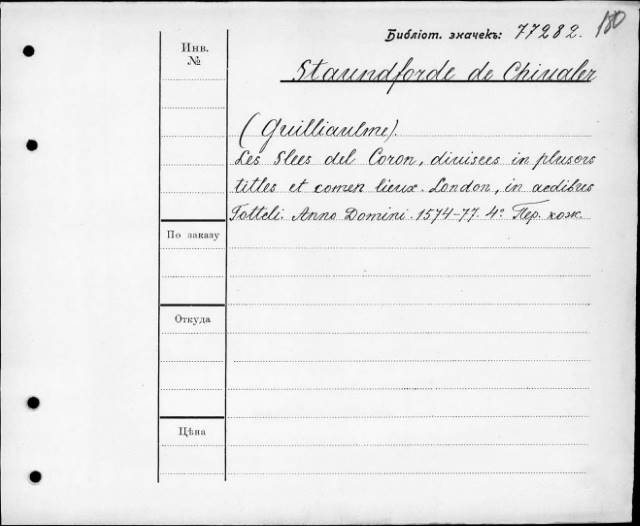 Библіот. значекъ: 77282. 180
Инв. №
Staundforde de Chiualer
(Guilliaulme).
Les Slees del Coron, diuisees in plusors
titles et comen lieux. London, in aedibus
Totteli. Anno Domini. 1574-77. 4º. Пер. кож.
По заказу
Откуда
Цѣна